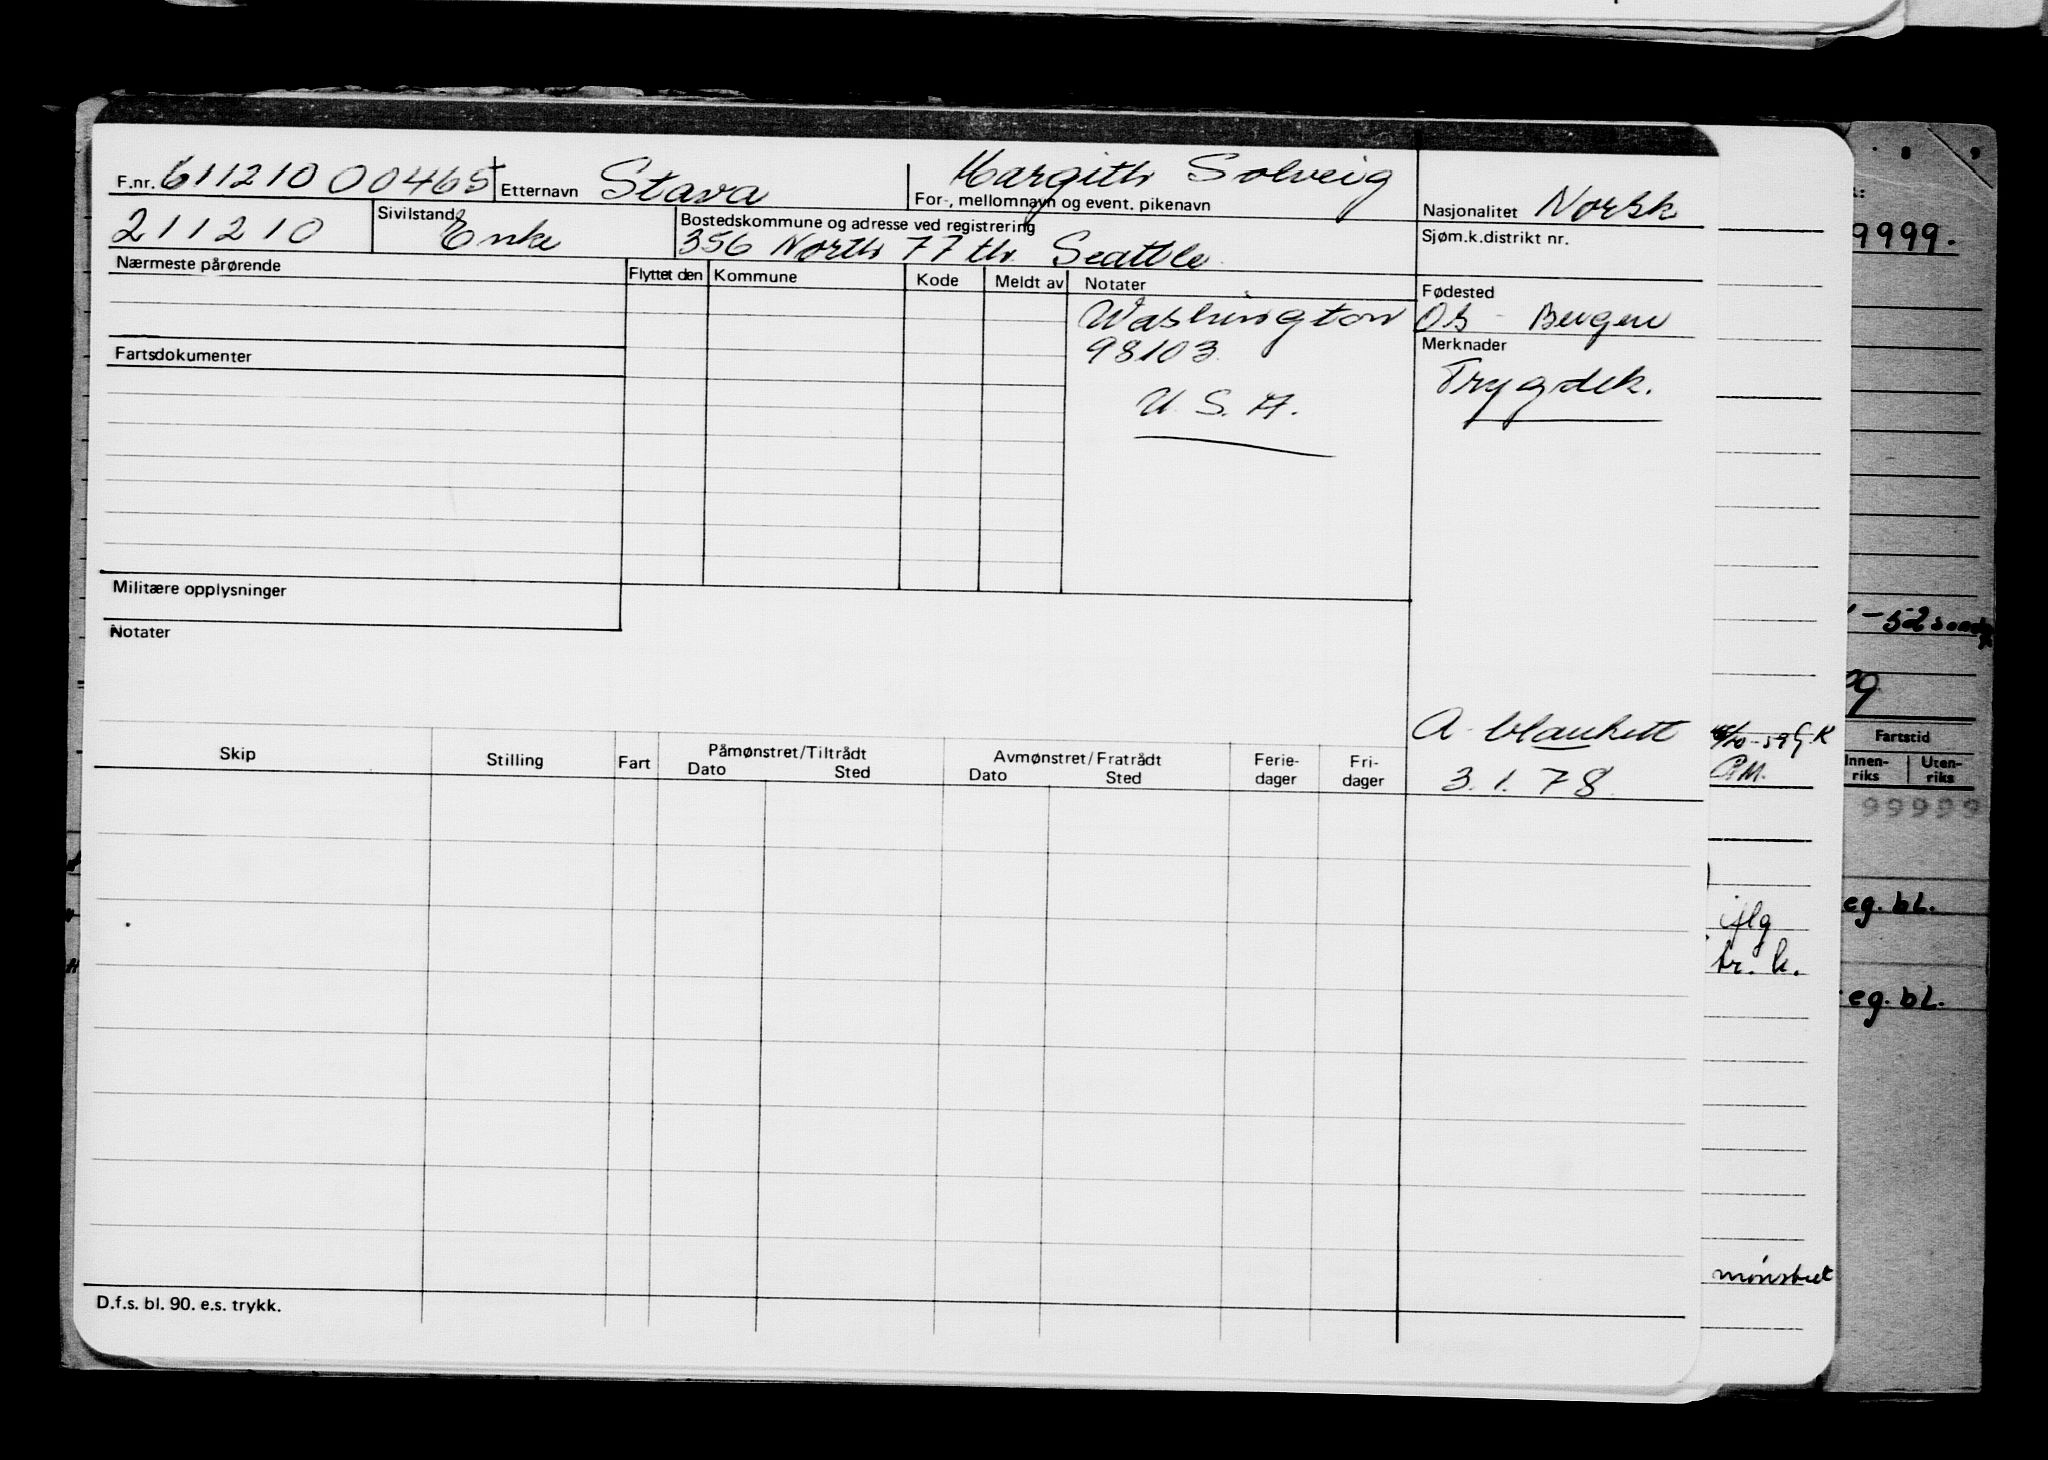 F.nr. 611210 00465 Etternavn Stava Margith Solveig
For-, mellomnavn og event. pikenavn
Nasjonalitet Norsk
211210 Sivilstand Enke
Bostedskommune og adresse ved registrering
356 North 77 th. Seattle
Sjøm.k.distrikt nr.
Nærmeste pårørende
Flyttet den Kommune Kode Meldt av Notater
Washington
98103
U. S. A.
Fødested
Bergen
Merknader
Trygdek.
Fartsdokumenter
Militære opplysninger
Notater
A- blankett
3. 1. 78.
Skip Stilling Fart Påmønstret/Tiltrådt Avmønstret/Fratrådt Ferie- Fri-
Dato Sted Dato Sted dager dager
D.f.s. bl. 90. e.s. trykk.
9999.
G.M.
tr. k.
mønstret
Fartstid
Innen- Uten-
riks riks
99999
eg. bl.
eg. bl.